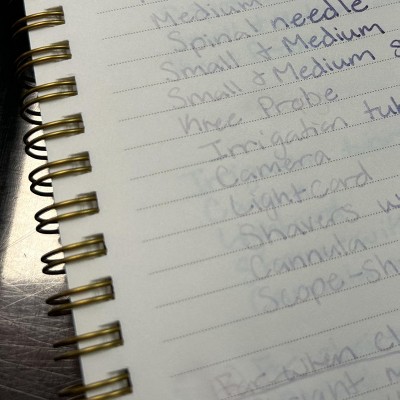 Medium
Spinal needle
Small & Medium
Small & Medium S
Knee Probe
Irrigation tub
Camera
Light Cord
Shavers w
Cannula
Scope-Sh
Between cl